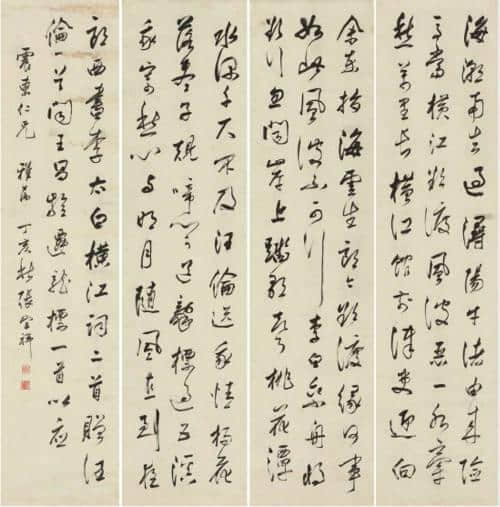 海潮南去過潯陽牛渚由来險
馬當橫江欲渡風波惡一水牽
愁萬里長橫江館前津吏迎向
余東指海雲生郎今欲渡緣何事
如此風波不可行李白乘舟將
欲行忽聞岸上踏歌聲桃花潭
水深千尺不及汪倫送我情楊花
落盡子規啼聞道龍標過五溪
我寄愁心与明月隨風直到夜
郎西書李太白橫江詞二首贈汪
倫一首聞王昌齡遷龍標一首以应
震東仁兄 雅屬 丁亥秋張宗祥